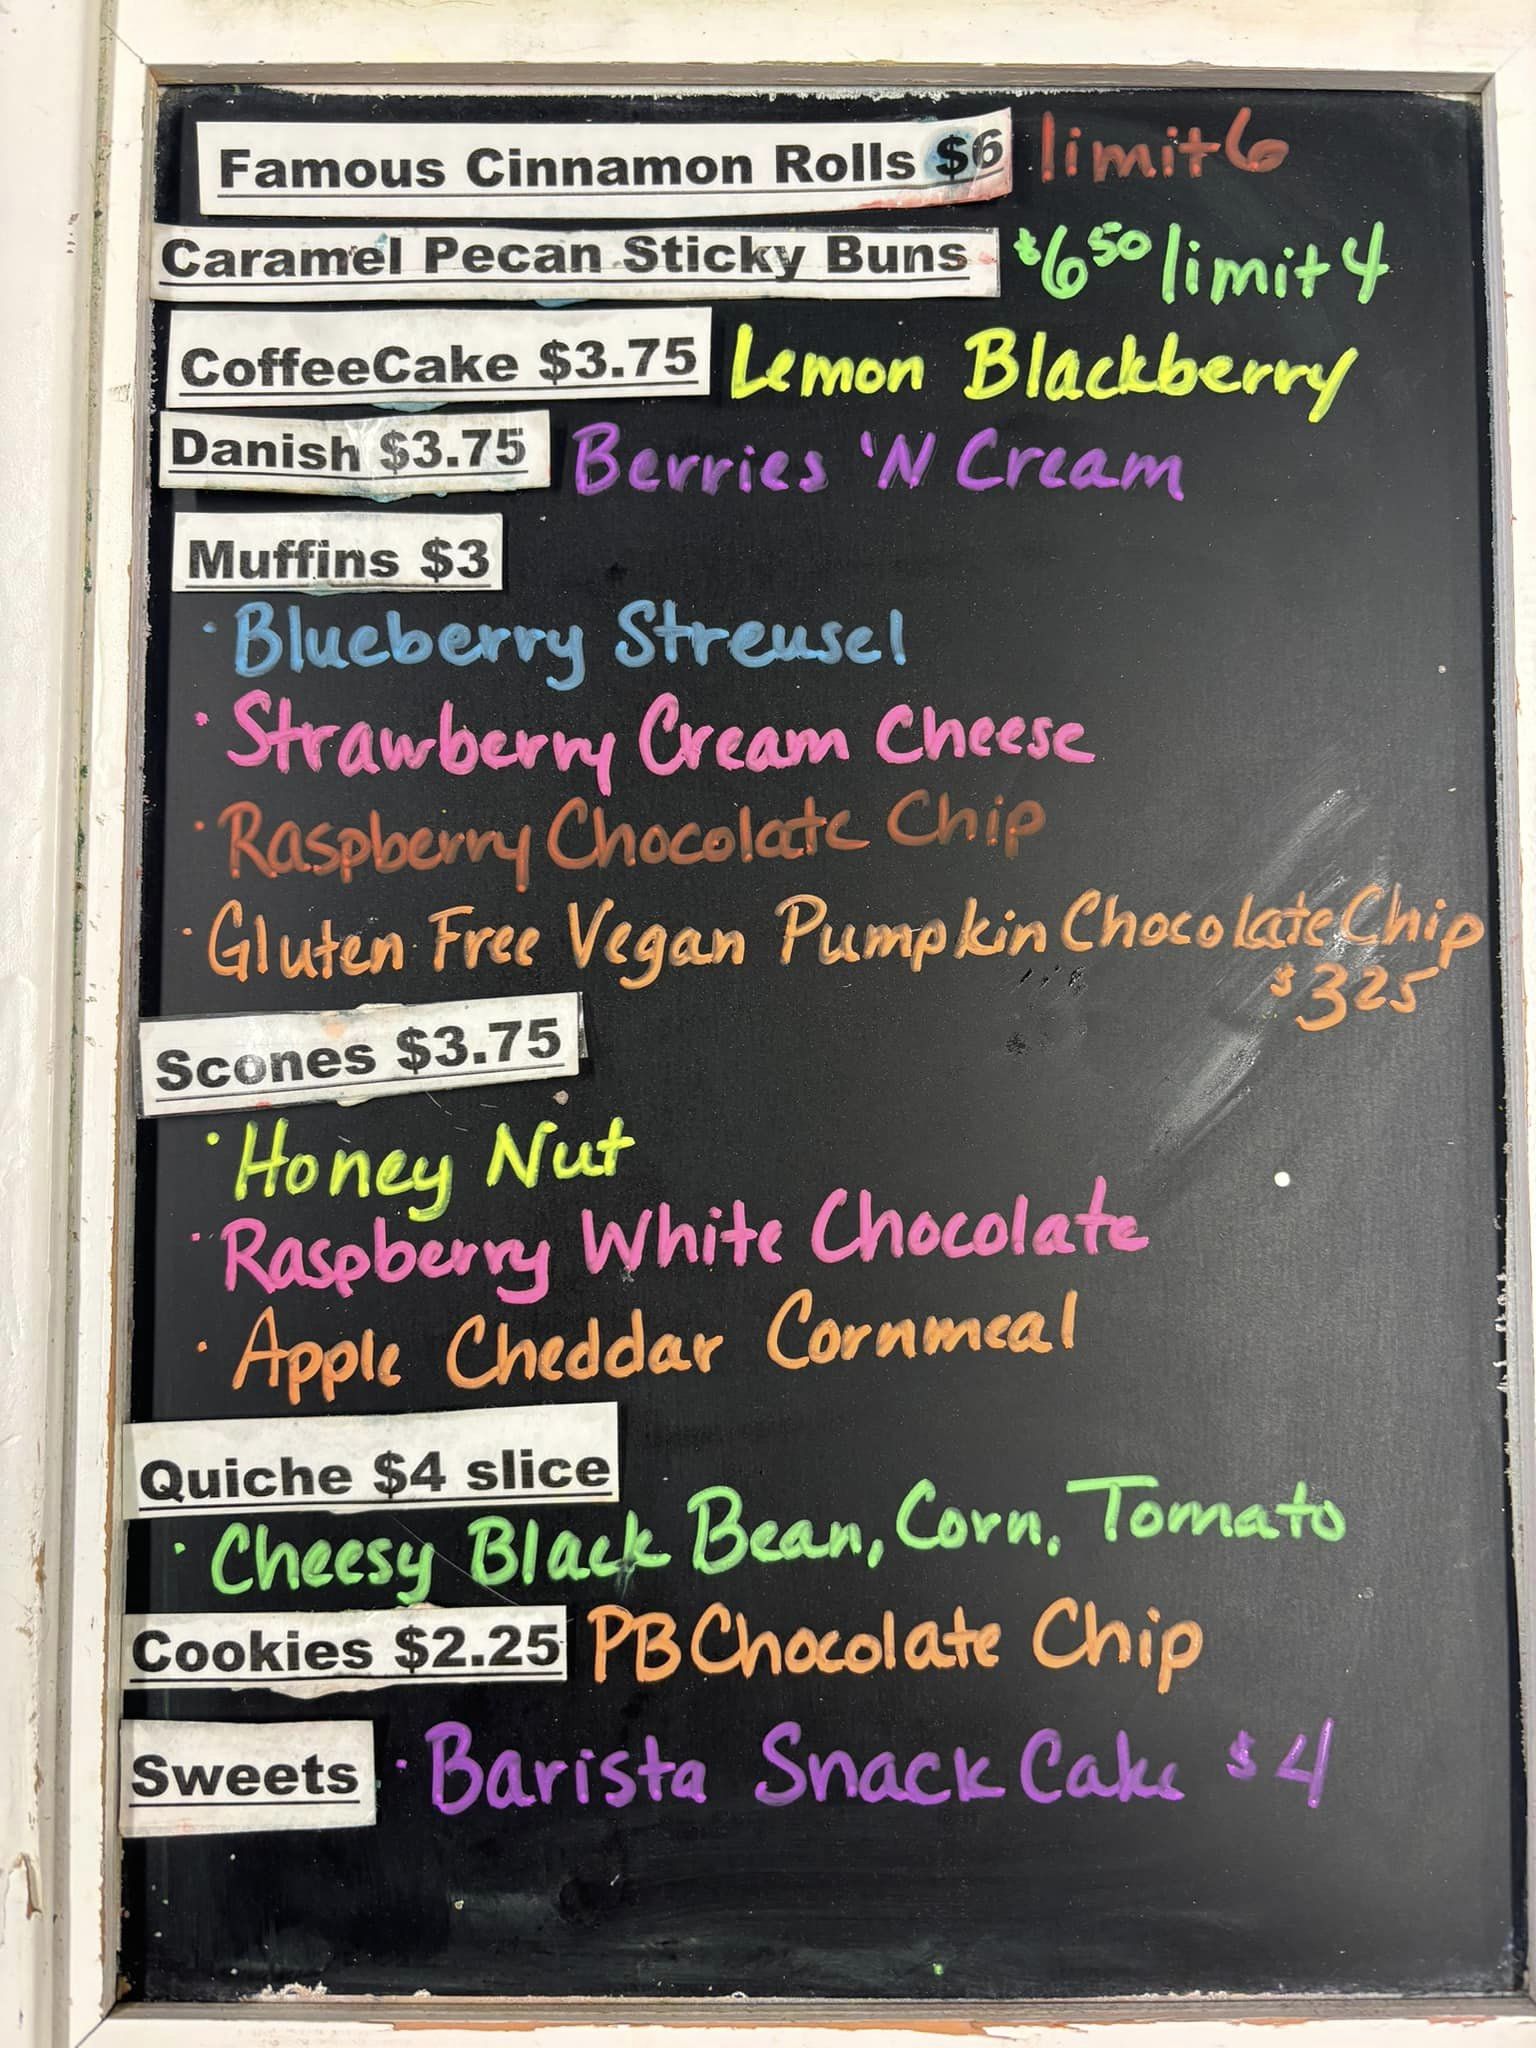 Famous Cinnamon Rolls $6 limit 6
Caramel Pecan Sticky Buns $6.50 limit 4
CoffeeCake $3.75 Lemon Blackberry
Danish $3.75 Berries 'N Cream
Muffins $3
· Blueberry Streusel
· Strawberry Cream Cheese
· Raspberry Chocolate Chip
· Gluten Free Vegan Pumpkin Chocolate Chip
$3 25
Scones $3.75
· Honey Nut
· Raspberry White Chocolate
· Apple Cheddar Cornmeal
Quiche $4 slice
· Cheesy Black Bean, Corn, Tomato
Cookies $2.25 PB Chocolate Chip
Sweets · Barista Snack Cake $4